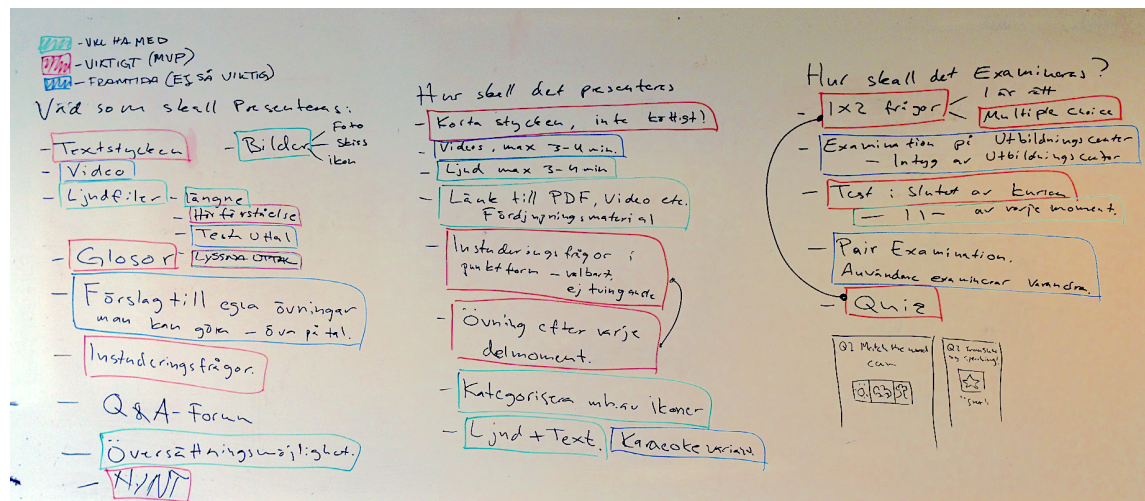 - VILL HA MED
- VIKTIGT (MVP)
- FRAMTIDA (EJ SÅ VIKTIG)
Vad som skall Presenteras:
- Textstycken
- Video
- Ljudfiler - längre
- Hörförståelse
- Testa Uttal
- Glosor - LYSSNA UTTAL
- Förslag till egna övningar
man kan göra - öva på tal.
- Instuderingsfrågor.
- Q&A-Forum
- Översättningsmöjlighet.
- HINT
- Bilder
Foto
Skiss
ikon
Hur skall det presenteras
- Korta stycken, inte köttigt!
- Videos, max 3-4 min.
- Ljud max 3-4 min
- Länk till PDF, Video etc.
Fördjupningsmaterial
- Instuderingsfrågor i
punktform - valbart,
ej tvingande
- Övning efter varje
delmoment.
- Kategorisera mh.av ikoner
- Ljud + Text. Karaoke variant.
Hur skall det Examineras?
- 1x2 frågor
1 är rätt
Multiple choice
- Examination på Utbildningscenter
- Intyg av Utbildningscenter
- Test i slutet av kursen
- 11 - av varje moment.
- Pair Examination.
Användare examinerar varandra.
- Quiz
Q1 Match the word
Q2 Translate
by speaking!